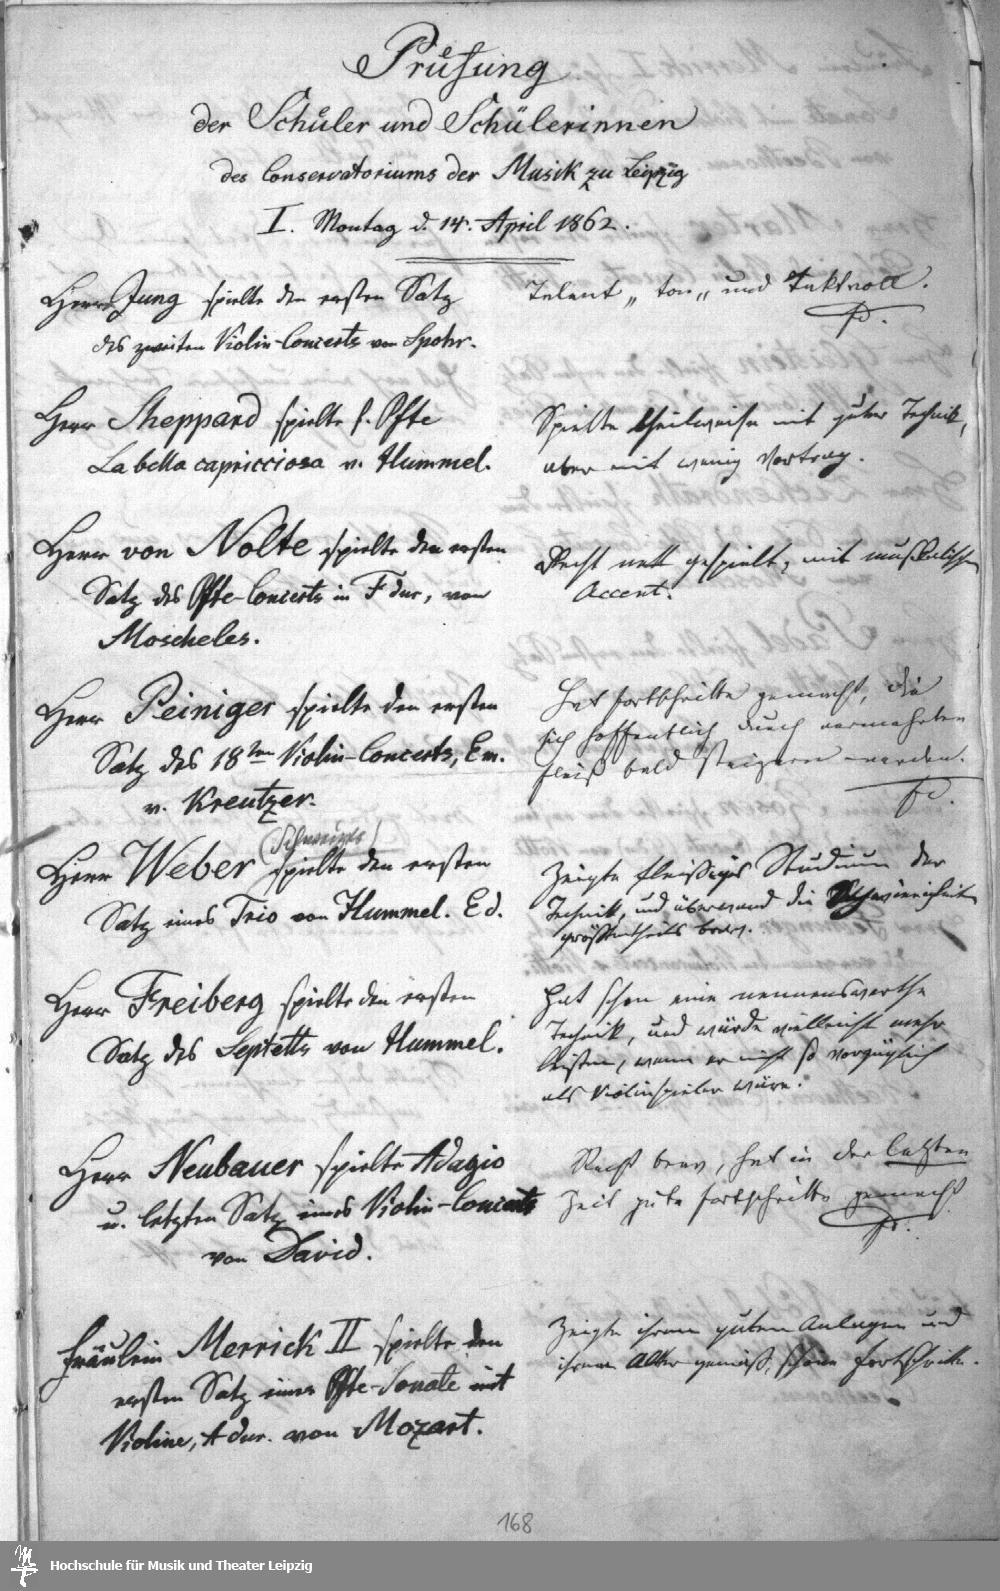 Prüfung
der Schüler und Schülerinnen
des Conservatoriums der Musik zu Leipzig
I. Montag d. 14. April 1862.
Herr Jung spielte den ersten Satz
des zweiten Violin-Concerts von Spohr.
Talent „ ton „ und Taktvoll.
Herr Sheppard spielte f. Pfte
La bella capricciosa v. Hummel.
Spielte theilweise mit guter Technik,
aber mit wenig Vortrag.
Herr von Nolte spielte den ersten
Satz des Pfte-Concerts in F dur, von
Moscheles.
Recht nett gespielt, mit musikalischen
Accent.
Herr Peiniger spielte den ersten
Satz des 18ten Violin-Concerts, Em.
v. Kreutzer.
Hat fortschritte gemacht, die
sich hoffentlich durch vermehrten
fleiß bald steigern werden.
Herr Weber spielte den ersten
Satz eines Trio von Hummel. Ed.
Zeigte fleißiges Studium der
Technik, und überwand die Schwierigkeiten
größtentheils brav.
Herr Freiberg spielte den ersten
Satz des Septetts von Hummel.
Hat schon eine nennenswerthe
Technik, und würde vielleicht mehr
leisten, wenn er nicht so vorzüglich
als Violinspieler wäre.
Herr Neubauer spielte Adagio
u. letzten Satz eines Violin-Concerts
von David.
Recht brav, hat in der letzten
Zeit gute fortschritte gemacht.
Fräulein Merrick II spielte den
ersten Satz einer Pfte-Sonate mit
Violine, A dur. von Mozart.
Zeigte ihrem guten Anlagen und
ihrem Alter gemäß, schöne fortschritte.
168
Hochschule für Musik und Theater Leipzig